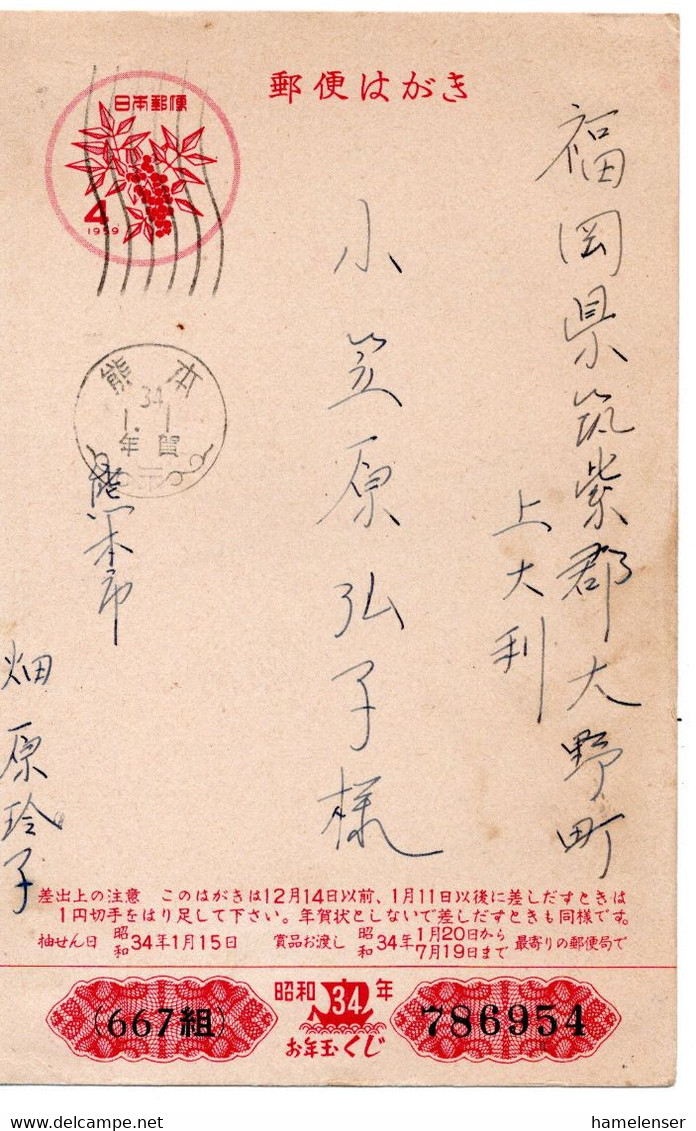 郵便はがき
日本郵便
4
1959
福岡県筑紫郡大野町
上大利
小笠原弘子様
熊本
34
1.1
年賀
熊本市
畑原玲子
差出上の注意 このはがきは12月14日以前、1月11日以後に差しだすときは
1円切手をはり足して下さい。年賀状としないで差しだすときも同様です。
抽せん日 昭和34年1月15日 賞品お渡し 昭和34年1月20日から7月19日まで 最寄りの郵便局で
(667組)
昭和34年
お年玉くじ
786954
hamelenser